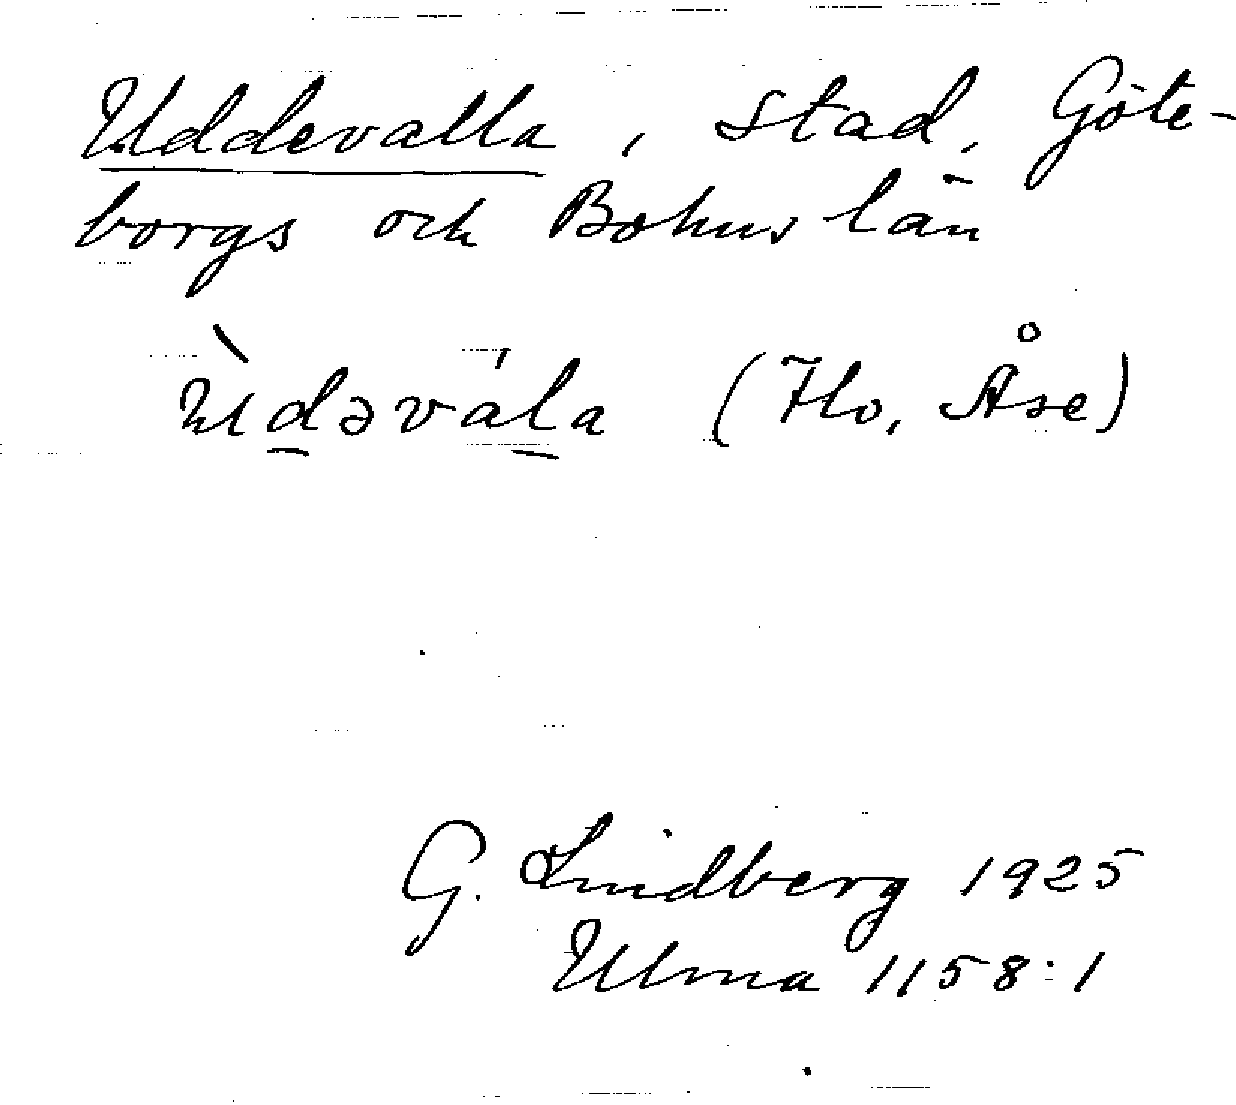 Uddevalla, stad, Göte-
borgs och Bohus län
ùd̲əvál̲a (Flo, Åse)
G. Lindberg 1925
Ulma 1158:1